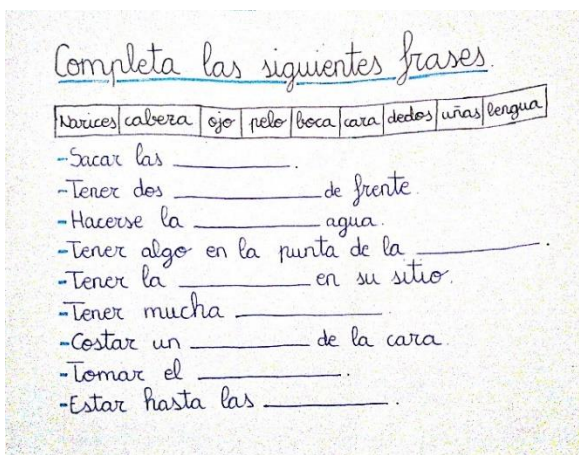 Completa las siguientes frases.
Narices cabeza ojo pelo boca cara dedos uñas lengua
-Sacar las __________.
-Tener dos __________ de frente.
-Hacerse la __________ agua.
-Tener algo en la punta de la __________.
-Tener la __________ en su sitio.
-Tener mucha __________.
-Costar un __________ de la cara.
-Tomar el __________.
-Estar hasta las __________.